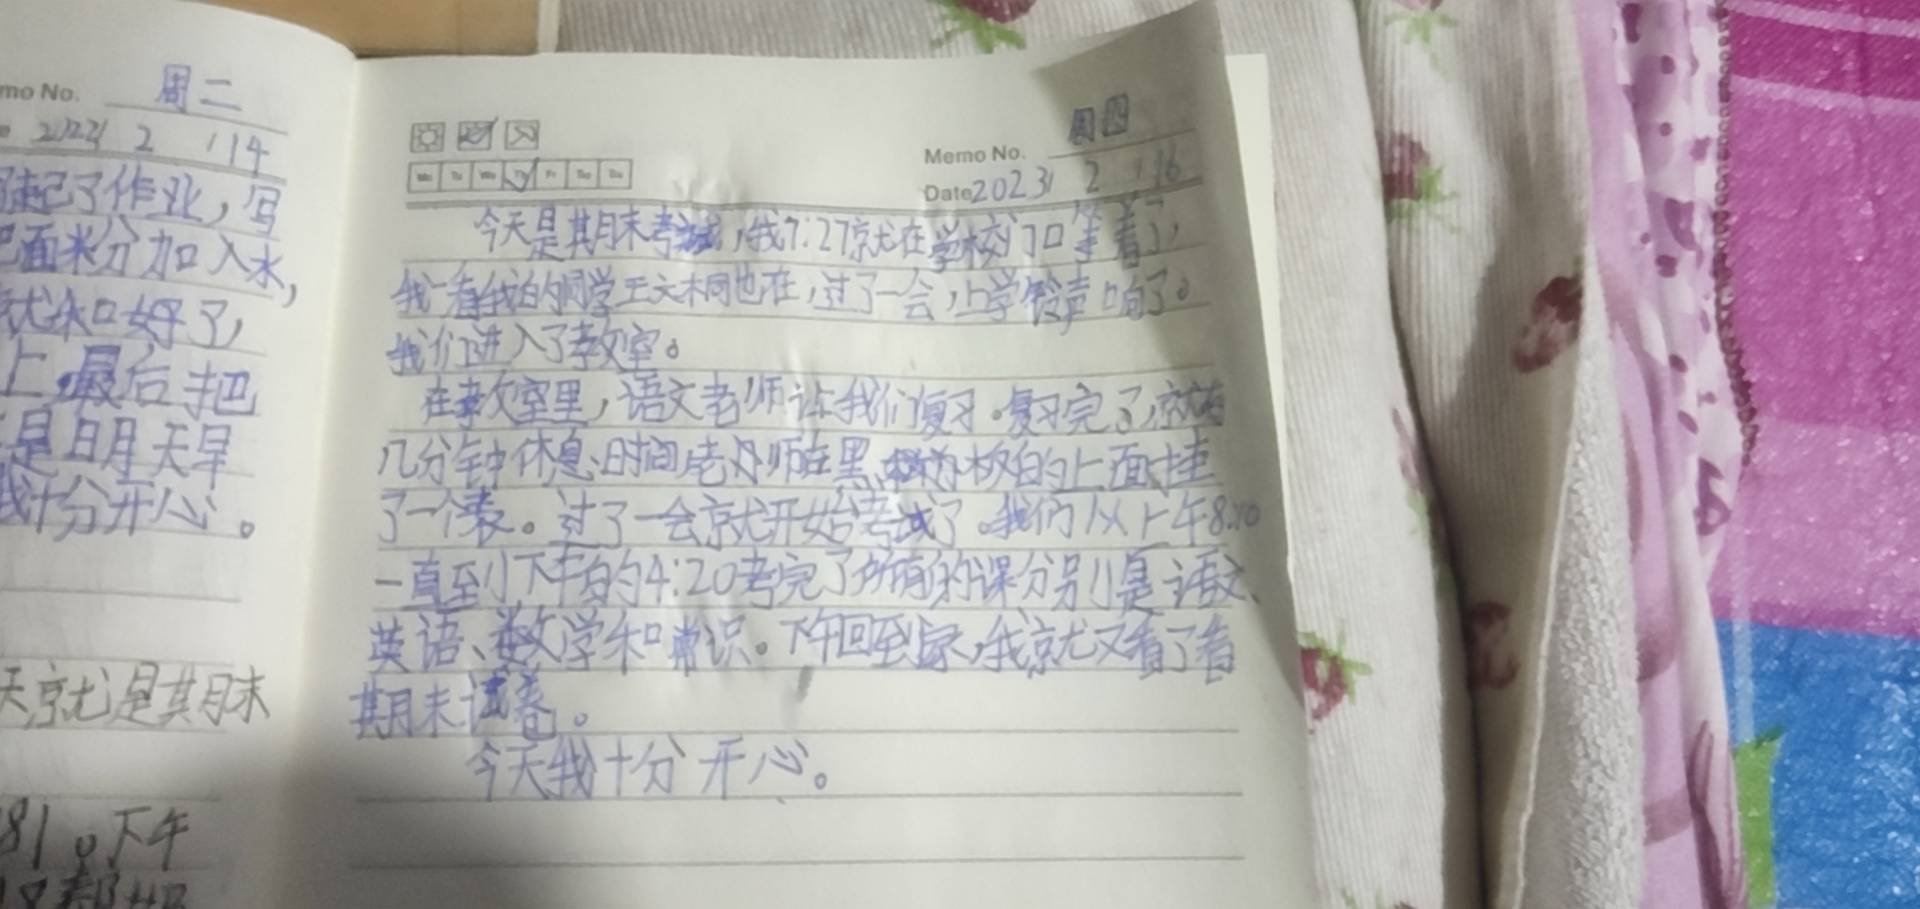 mo No. 周二
2023/ 2 / 14
起了作业，写
面米分加入水，
就和好了，
上，最后把
是明天早
我十分开心。
天就是其月末
81。下午
Mo Tu We Th Fr Sa Su
Memo No. 周四
Date 2023/ 2 / 16
今天是期末考试，我7:27就在学校门口等着了，
我一看我的同学王文桐也在，过了一会，上学铃声响了。
我们进入了教室。
在教室里，语文老师让我们复习。复习完了，就有
几分钟休息时间，老师在黑板的上面挂
了一个表。过了一会就开始考试了。我们从上午8:10
一直到下午的4:20考完了所有的课分别是语文、
英语、数学和常识。下午回到家，我就又看了看
期末试卷。
今天我十分开心。